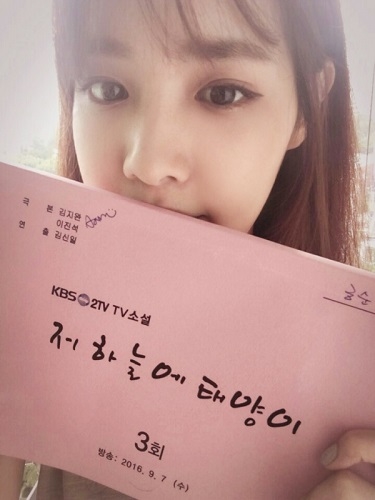 극 본 김지완
이진석
연 출 김신일
금순
KBS 2TV TV소설
저 하늘에 태양이
3회
방송: 2016. 9. 7 (수)